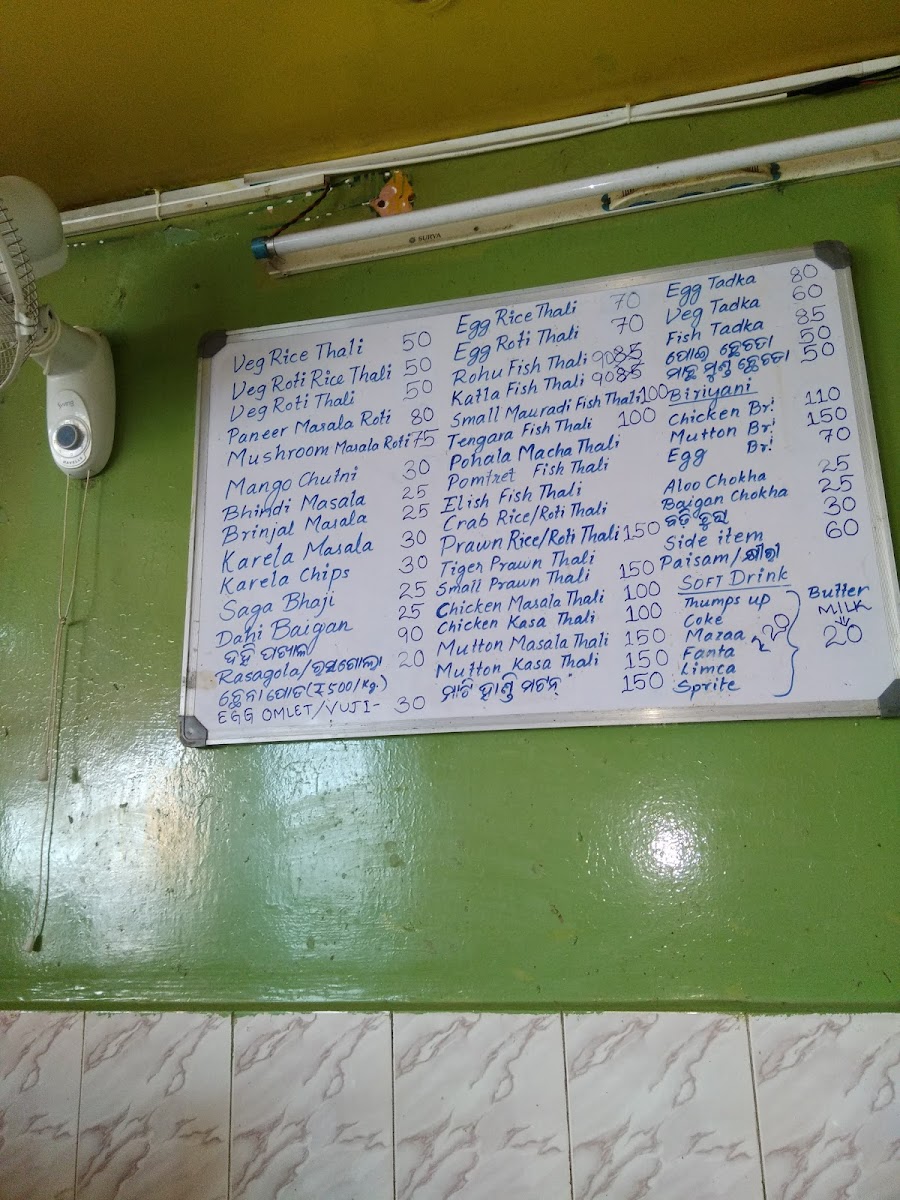 Veg Rice Thali 50
Veg Roti Rice Thali 50
Veg Roti Thali 50
Paneer Masala Roti 80
Mushroom Masala Roti 75
Mango Chutni 30
Bhindi Masala 25
Brinjal Masala 25
Karela Masala 30
Karela Chips 30
Saga Bhaji 25
Dahi Baigan 25
ଦହି ପଖାଳ 90
Rasagola/ରସଗୋଲା 20
ଛେନାପୋଡ (₹500/Kg.)
EGG OMLET/VUJI- 30
Egg Rice Thali 70
Egg Roti Thali 70
Rohu Fish Thali 90 85
Katla Fish Thali 90 85
Small Mauradi Fish Thali 100
Tengara Fish Thali 100
Pohala Macha Thali
Pomfret Fish Thali
Elish Fish Thali
Crab Rice/Roti Thali
Prawn Rice/Roti Thali 150
Tiger Prawn Thali
Small Prawn Thali 150
Chicken Masala Thali 100
Chicken Kasa Thali 100
Mutton Masala Thali 150
Mutton Kasa Thali 150
ମାଟି ହାଣ୍ଡି ମଟନ୍ 150
Egg Tadka 80
Veg Tadka 60
Fish Tadka 85
ପୋଇ ଛେଚଡା 50
ମାଛ ମୁଣ୍ଡ ଛେଚଡା 50
Biriyani
Chicken Br: 110
Mutton Br: 150
Egg Br: 70
Aloo Chokha 25
Baigan Chokha 25
ବଡ଼ି ଚୁରା 30
Side item 60
Paisam/ଖୀରୀ
SOFT Drink
Thumps up
Coke
Mazaa 20
Fanta
Limca
Sprite
Butter
MILK
20
SURYA